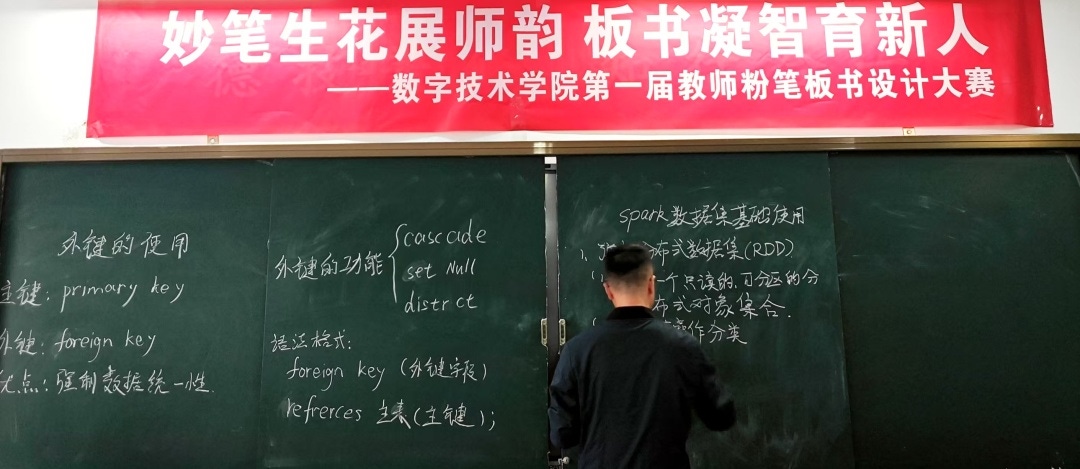 妙笔生花展师韵 板书凝智育新人
——数字技术学院第一届教师粉笔板书设计大赛
外键的使用
主键: primary key
外键: foreign key
优点: 强制数据统一性.
外键的功能
cascade
set Null
distrct
语法格式:
foreign key (外键字段)
refrerces 主表(主键);
spark数据集基础使用
1、 布式数据集(RDD)
一个只读的,可分区的分
布式对象集合.
操作分类